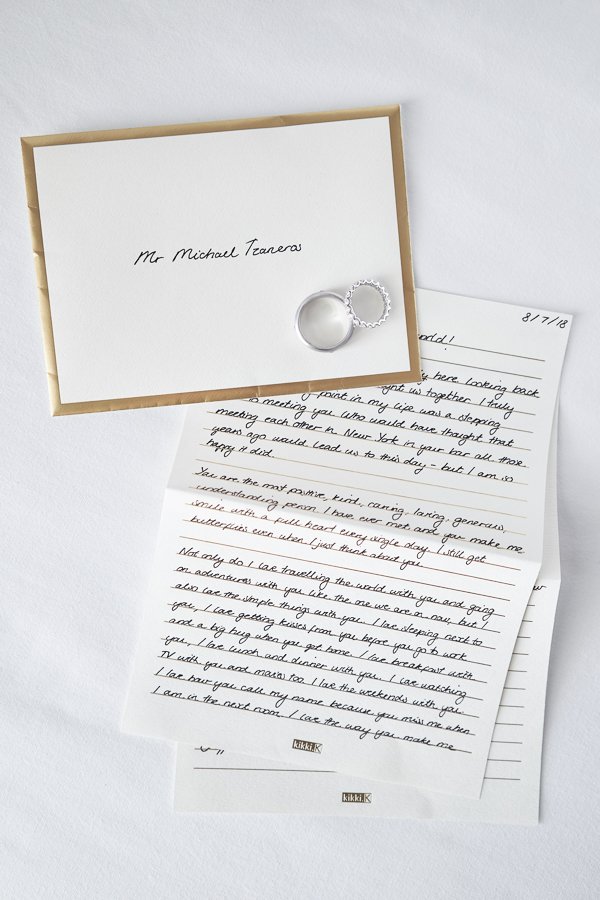 Mr Michael Tzaneros
8/7/18
world!
here looking back
ght us together. I truly
point in my life was a stepping
to meeting you. Who would have thought that
meeting each other in New York in your bar all those
years ago would lead us to this day - but I am so
happy it did.
You are the most positive, kind, caring, loving, generous,
understanding person I have ever met and you make me
smile with a full heart every single day. I still get
butterflies even when I just think about you.
Not only do I love travelling the world with you and going
on adventures with you like the one we are on now, but I
also love the simple things with you. I love sleeping next to
you, I love getting kisses from you before you go to work
and a big hug when you get home. I love breakfast with
you, I love lunch and dinner with you. I love watching
TV with you and movies too. I love the weekends with you.
I love how you call my name because you miss me when
I am in the next room. I love the way you make me
kikki.K
kikki.K